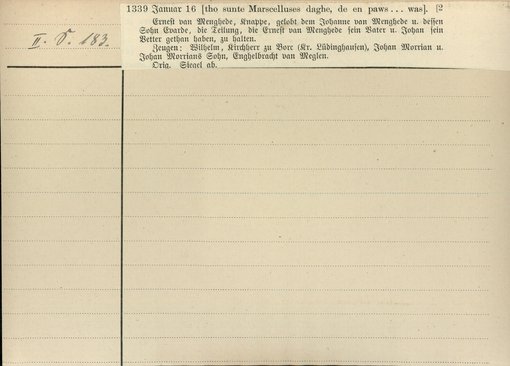 1339 Januar 16 [tho sunte Marscelluses daghe, de en paws ... was]. [2
Ernst van Menghede, Knappe, gelobt dem Johanne van Menghede u. dessen
Sohn Evarde, die Teilung, die Ernst van Menghede sein Vater u. Johan sein
Vetter gethan haben, zu halten.
Zeugen: Wilhelm, Kirchherr zu Borc (Kr. Lüdinghausen), Johan Morrian u.
Johan Morrians Sohn, Enghelbracht van Meglen.
Orig. Siegel ab.
II. S. 183.